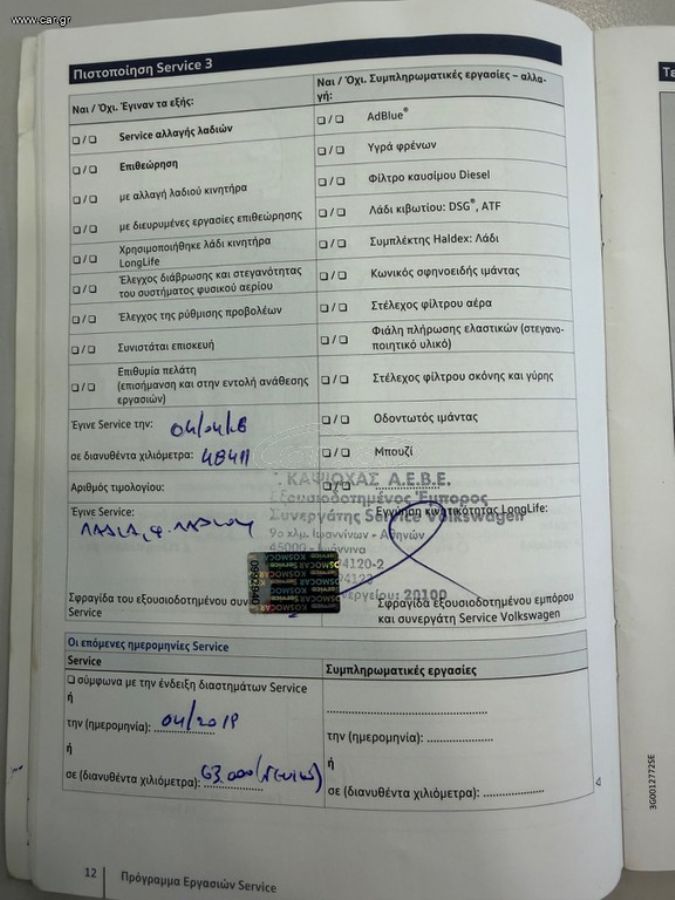 www.car.gr
Πιστοποίηση Service 3
Ναι / Όχι. Έγιναν τα εξής:
❏ / ❏ Service αλλαγής λαδιών
❏ / ❏ Επιθεώρηση
❏ / ❏ με αλλαγή λαδιού κινητήρα
❏ / ❏ με διευρυμένες εργασίες επιθεώρησης
❏ / ❏ Χρησιμοποιήθηκε λάδι κινητήρα
LongLife
❏ / ❏ Έλεγχος διάβρωσης και στεγανότητας
του συστήματος φυσικού αερίου
❏ / ❏ Έλεγχος της ρύθμισης προβολέων
❏ / ❏ Συνιστάται επισκευή
❏ / ❏ Επιθυμία πελάτη
(επισήμανση και στην εντολή ανάθεσης
εργασιών)
Έγινε Service την: 04/04/18
σε διανυθέντα χιλιόμετρα: 48411
Αριθμός τιμολογίου:
Έγινε Service:
ΛΑΔΙΑ, Φ. ΛΑΔΙΟΥ
Σφραγίδα του εξουσιοδοτημένου συν
Service
Ναι / Όχι. Συμπληρωματικές εργασίες – αλλα-
γή:
❏ / ❏ AdBlue®
❏ / ❏ Υγρά φρένων
❏ / ❏ Φίλτρο καυσίμου Diesel
❏ / ❏ Λάδι κιβωτίου: DSG®, ATF
❏ / ❏ Συμπλέκτης Haldex: Λάδι
❏ / ❏ Κωνικός σφηνοειδής ιμάντας
❏ / ❏ Στέλεχος φίλτρου αέρα
❏ / ❏ Φιάλη πλήρωσης ελαστικών (στεγανο-
ποιητικό υλικό)
❏ / ❏ Στέλεχος φίλτρου σκόνης και γύρης
❏ / ❏ Οδοντωτός ιμάντας
❏ / ❏ Μπουζί
❏ / ❏
Εγγύηση κινητικότητας LongLife:
Σφραγίδα εξουσιοδοτημένου εμπόρου
και συνεργάτη Service Volkswagen
ΚΑΨΙΟΧΑΣ Α.Ε.Β.Ε.
Εξουσιοδοτημένος Έμπορος
Συνεργάτης Service Volkswagen
9ο χλμ. Ιωαννίνων - Αθηνών
45000 - Ιωάννινα
74120-2
20100
KOSMOCAR
Service
Οι επόμενες ημερομηνίες Service
Service
❏ σύμφωνα με την ένδειξη διαστημάτων Service
ή
την (ημερομηνία): 04/2019
ή
σε (διανυθέντα χιλιόμετρα): 63.000
Συμπληρωματικές εργασίες
την (ημερομηνία):
ή
σε (διανυθέντα χιλιόμετρα):
12 Πρόγραμμα Εργασιών Service
3G0012772SE
Τε